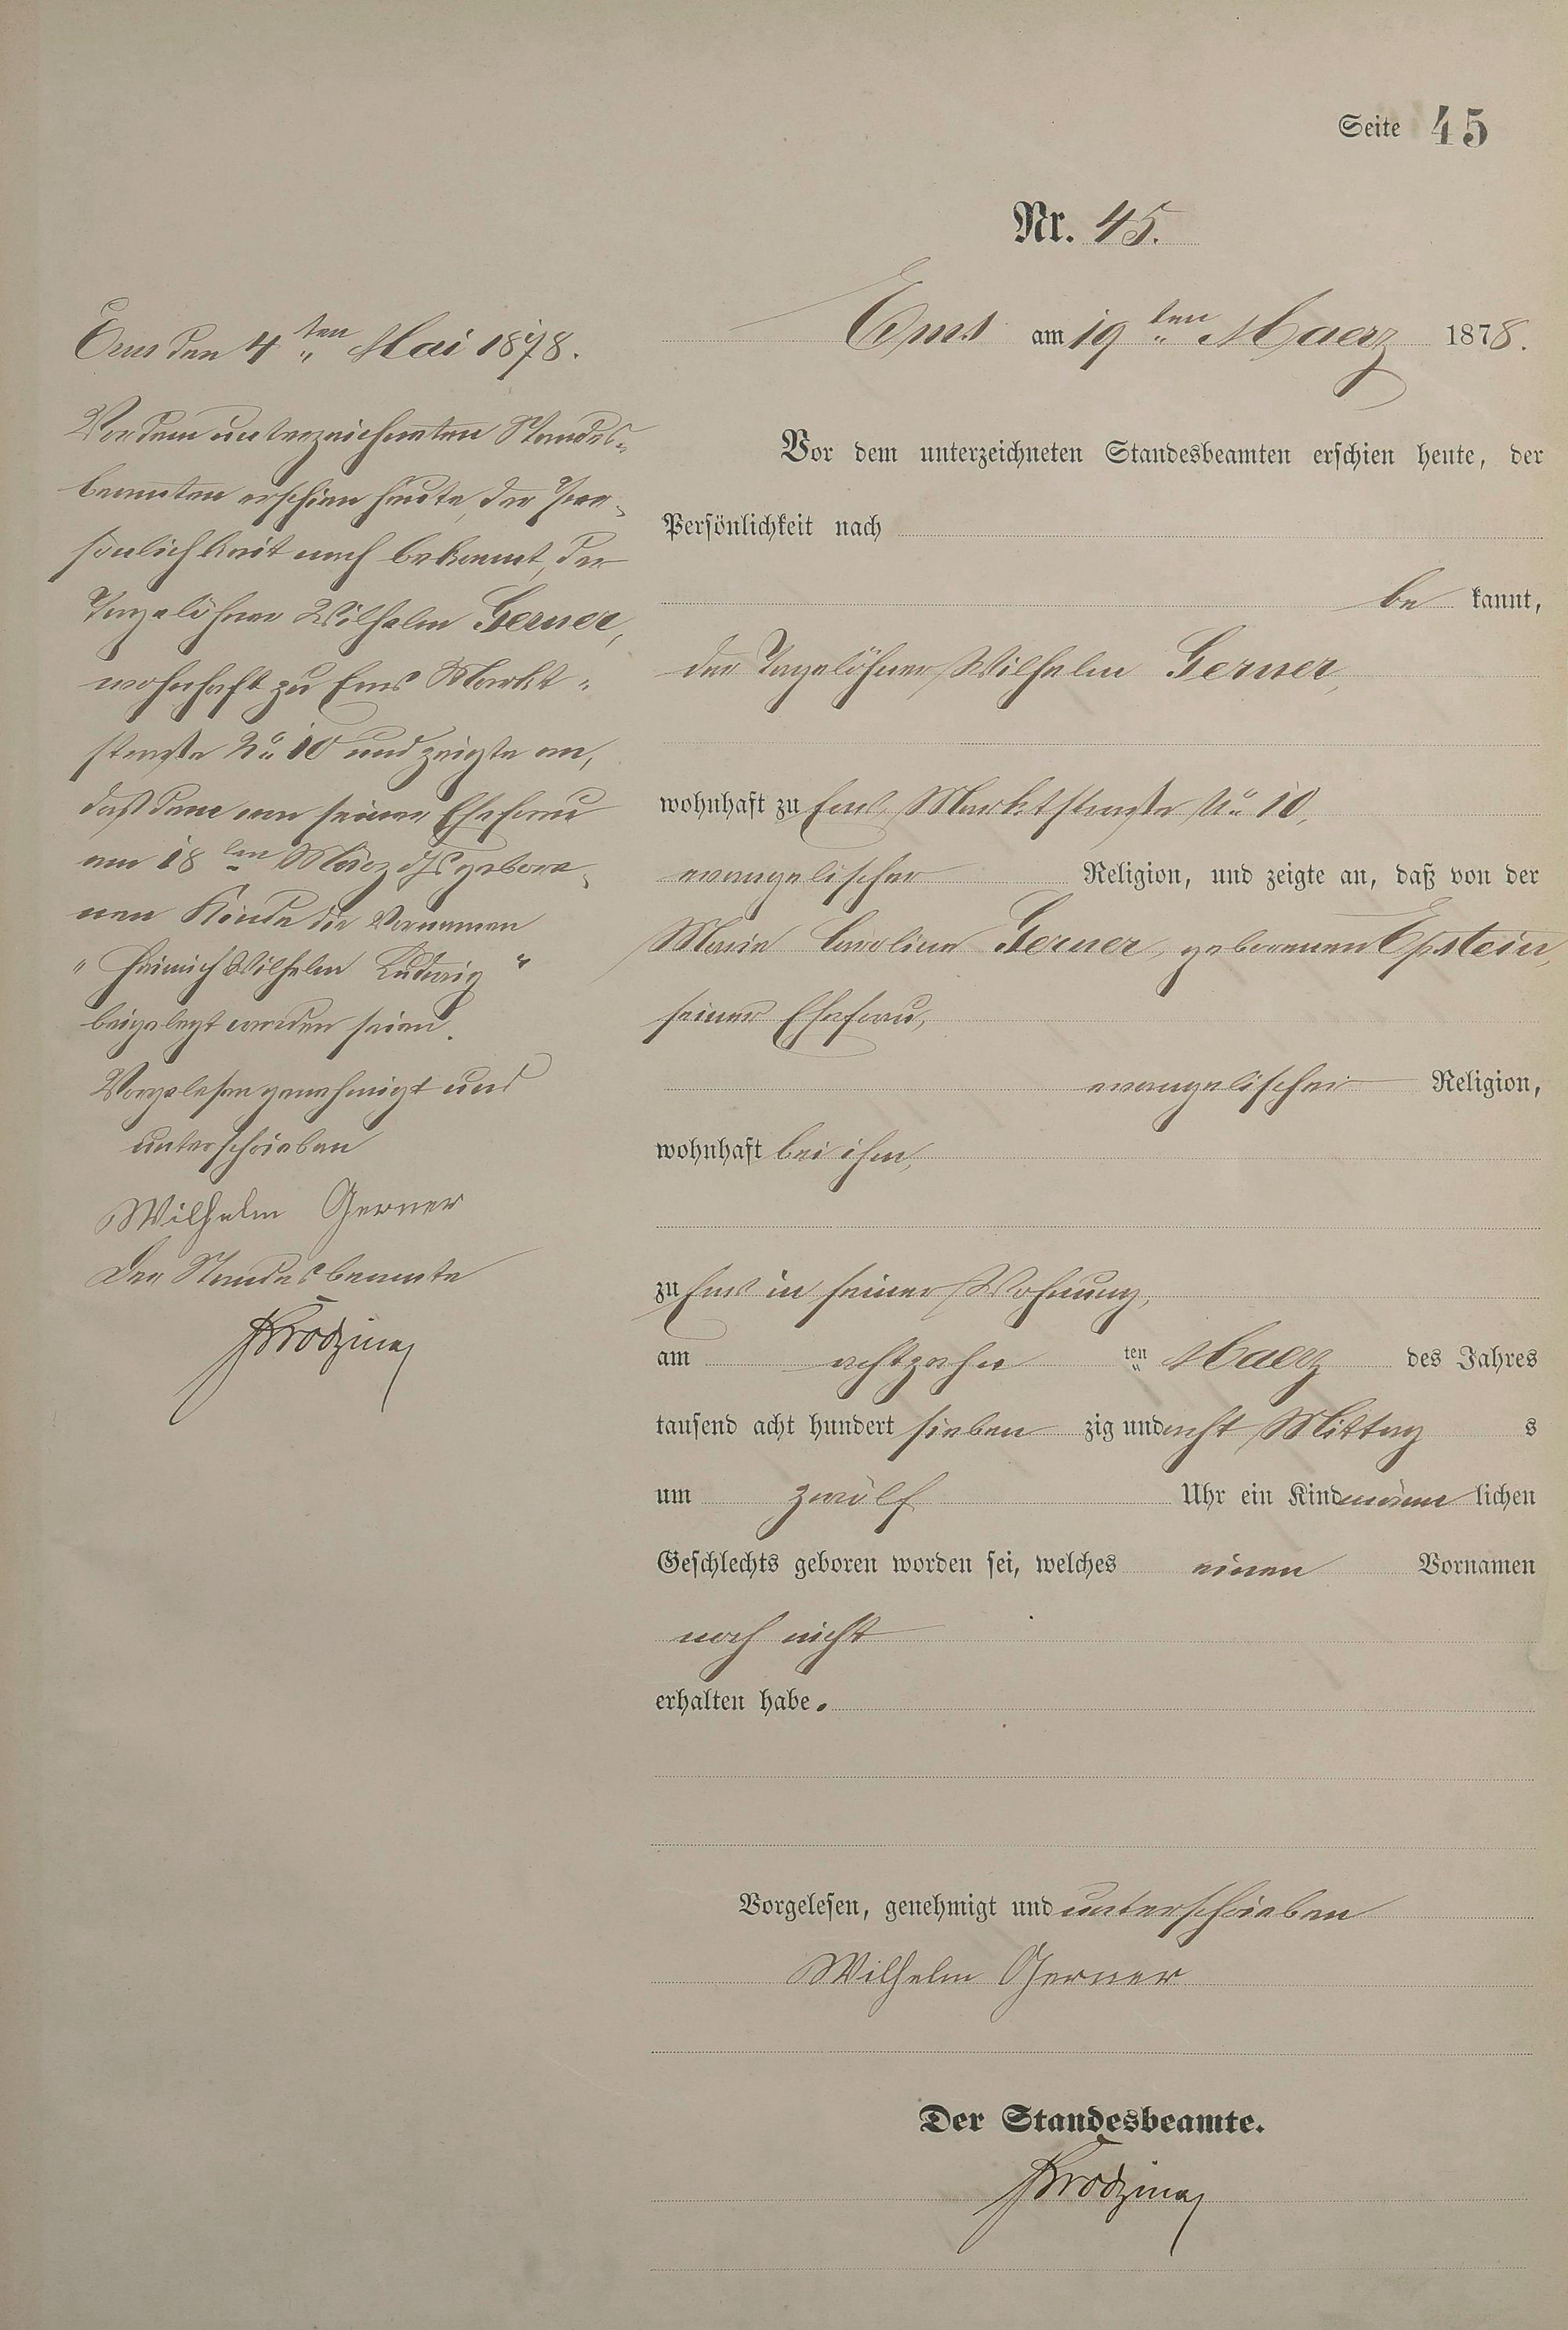 Seite 45
Nr. 45.
Ems am 19ten Maerz 1878.
Vor dem unterzeichneten Standesbeamten erschien heute, der
Persönlichkeit nach
be kannt,
der Tagelöhner Wilhelm Gerner,
wohnhaft zu Ems Marktstraße No 10,
evangelischer Religion, und zeigte an, daß von der
Marie Caroline Gerner, geborenen Epstein,
seiner Ehefrau,
evangelischer Religion,
wohnhaft bei ihm,
zu Ems in seiner Wohnung,
am achtzehn ten Maerz des Jahres
tausend acht hundert sieben zig und acht Mittag s
um zwölf Uhr ein Kind männ lichen
Geschlechts geboren worden sei, welches einen Vornamen
noch nicht
erhalten habe.
Vorgelesen, genehmigt und unterschrieben
Wilhelm Gerner
Der Standesbeamte.
Ems den 4ten Mai 1878.
Vor dem unterzeichneten Standes-
beamten erschien heute, der Per-
sönlichkeit nach bekannt, der
Tagelöhner Wilhelm Gerner,
wohnhaft zu Ems Markt-
straße No 10 und zeigte an,
daß dem von seiner Ehefrau
am 18ten März ds gebore-
nen Kinde die Vornamen
"Heinrich Wilhelm Ludwig"
beigelegt worden seien.
Vorgelesen genehmigt und
unterschrieben
Wilhelm Gerner
Der Standesbeamte